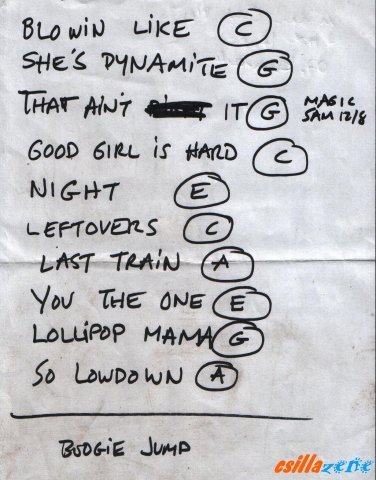 BLOWIN LIKE C
SHE'S DYNAMITE G
THAT AIN'T IT G MAGIC SAM 12/8
GOOD GIRL IS HARD C
NIGHT E
LEFTOVERS C
LAST TRAIN A
YOU THE ONE E
LOLLIPOP MAMA G
SO LOWDOWN A
BOOGIE JUMP
csillazene